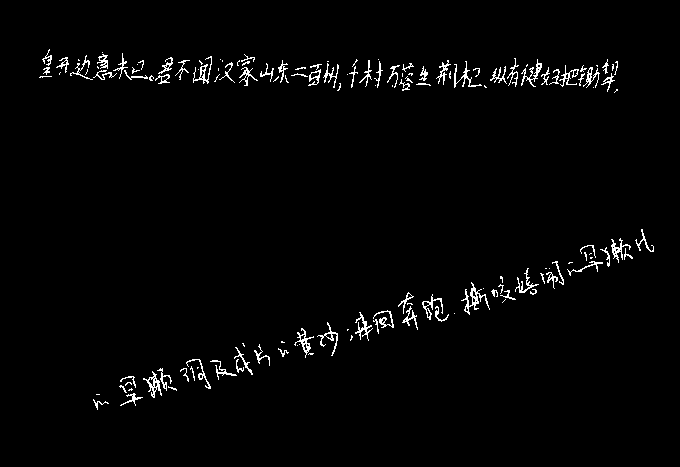 皇开边意未已。君不闻汉家山东二百州,千村万落生荆杞、纵有健妇把锄犁,
的旱獭洞及成片的黄沙,来回奔跑、撕咬嬉闹的旱獭比